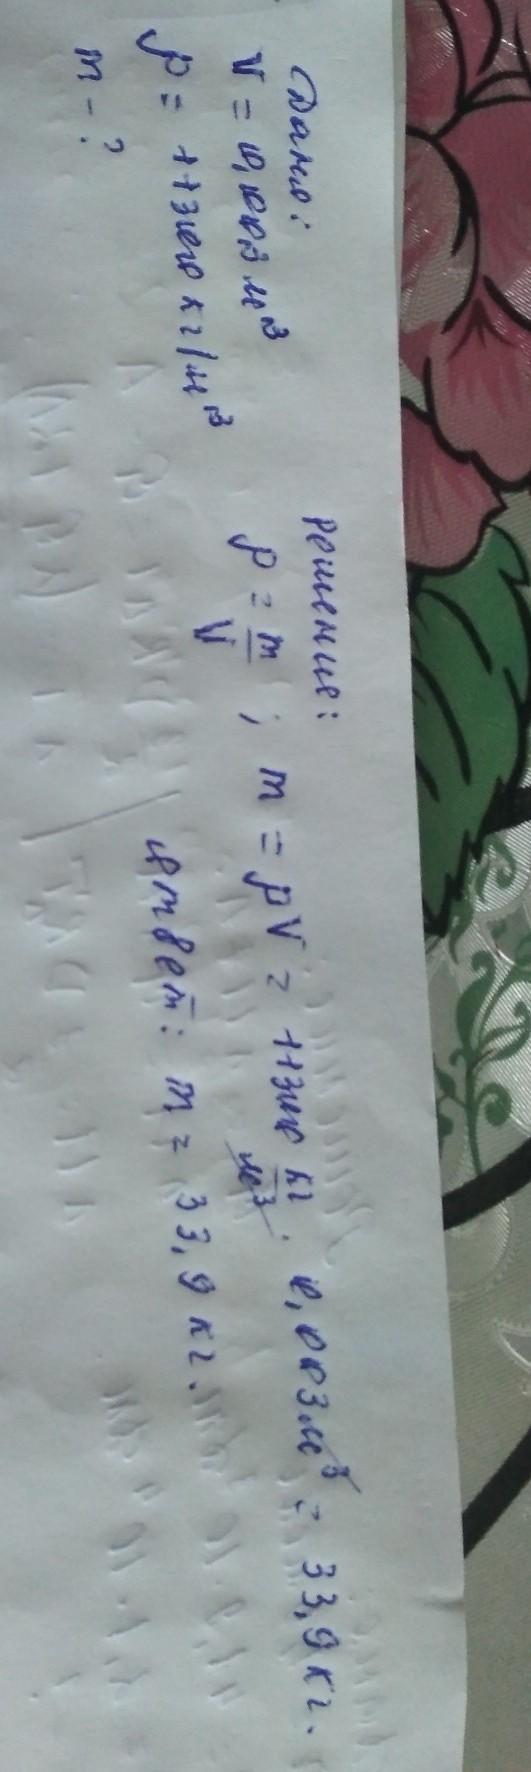 Дано:
V = 0,003 м³
ρ = 11300 кг/м³
m - ?
Решение:
ρ = m/V ; m = ρV = 11300 кг/м³ · 0,003 м³ = 33,9 кг.
Ответ: m = 33,9 кг.